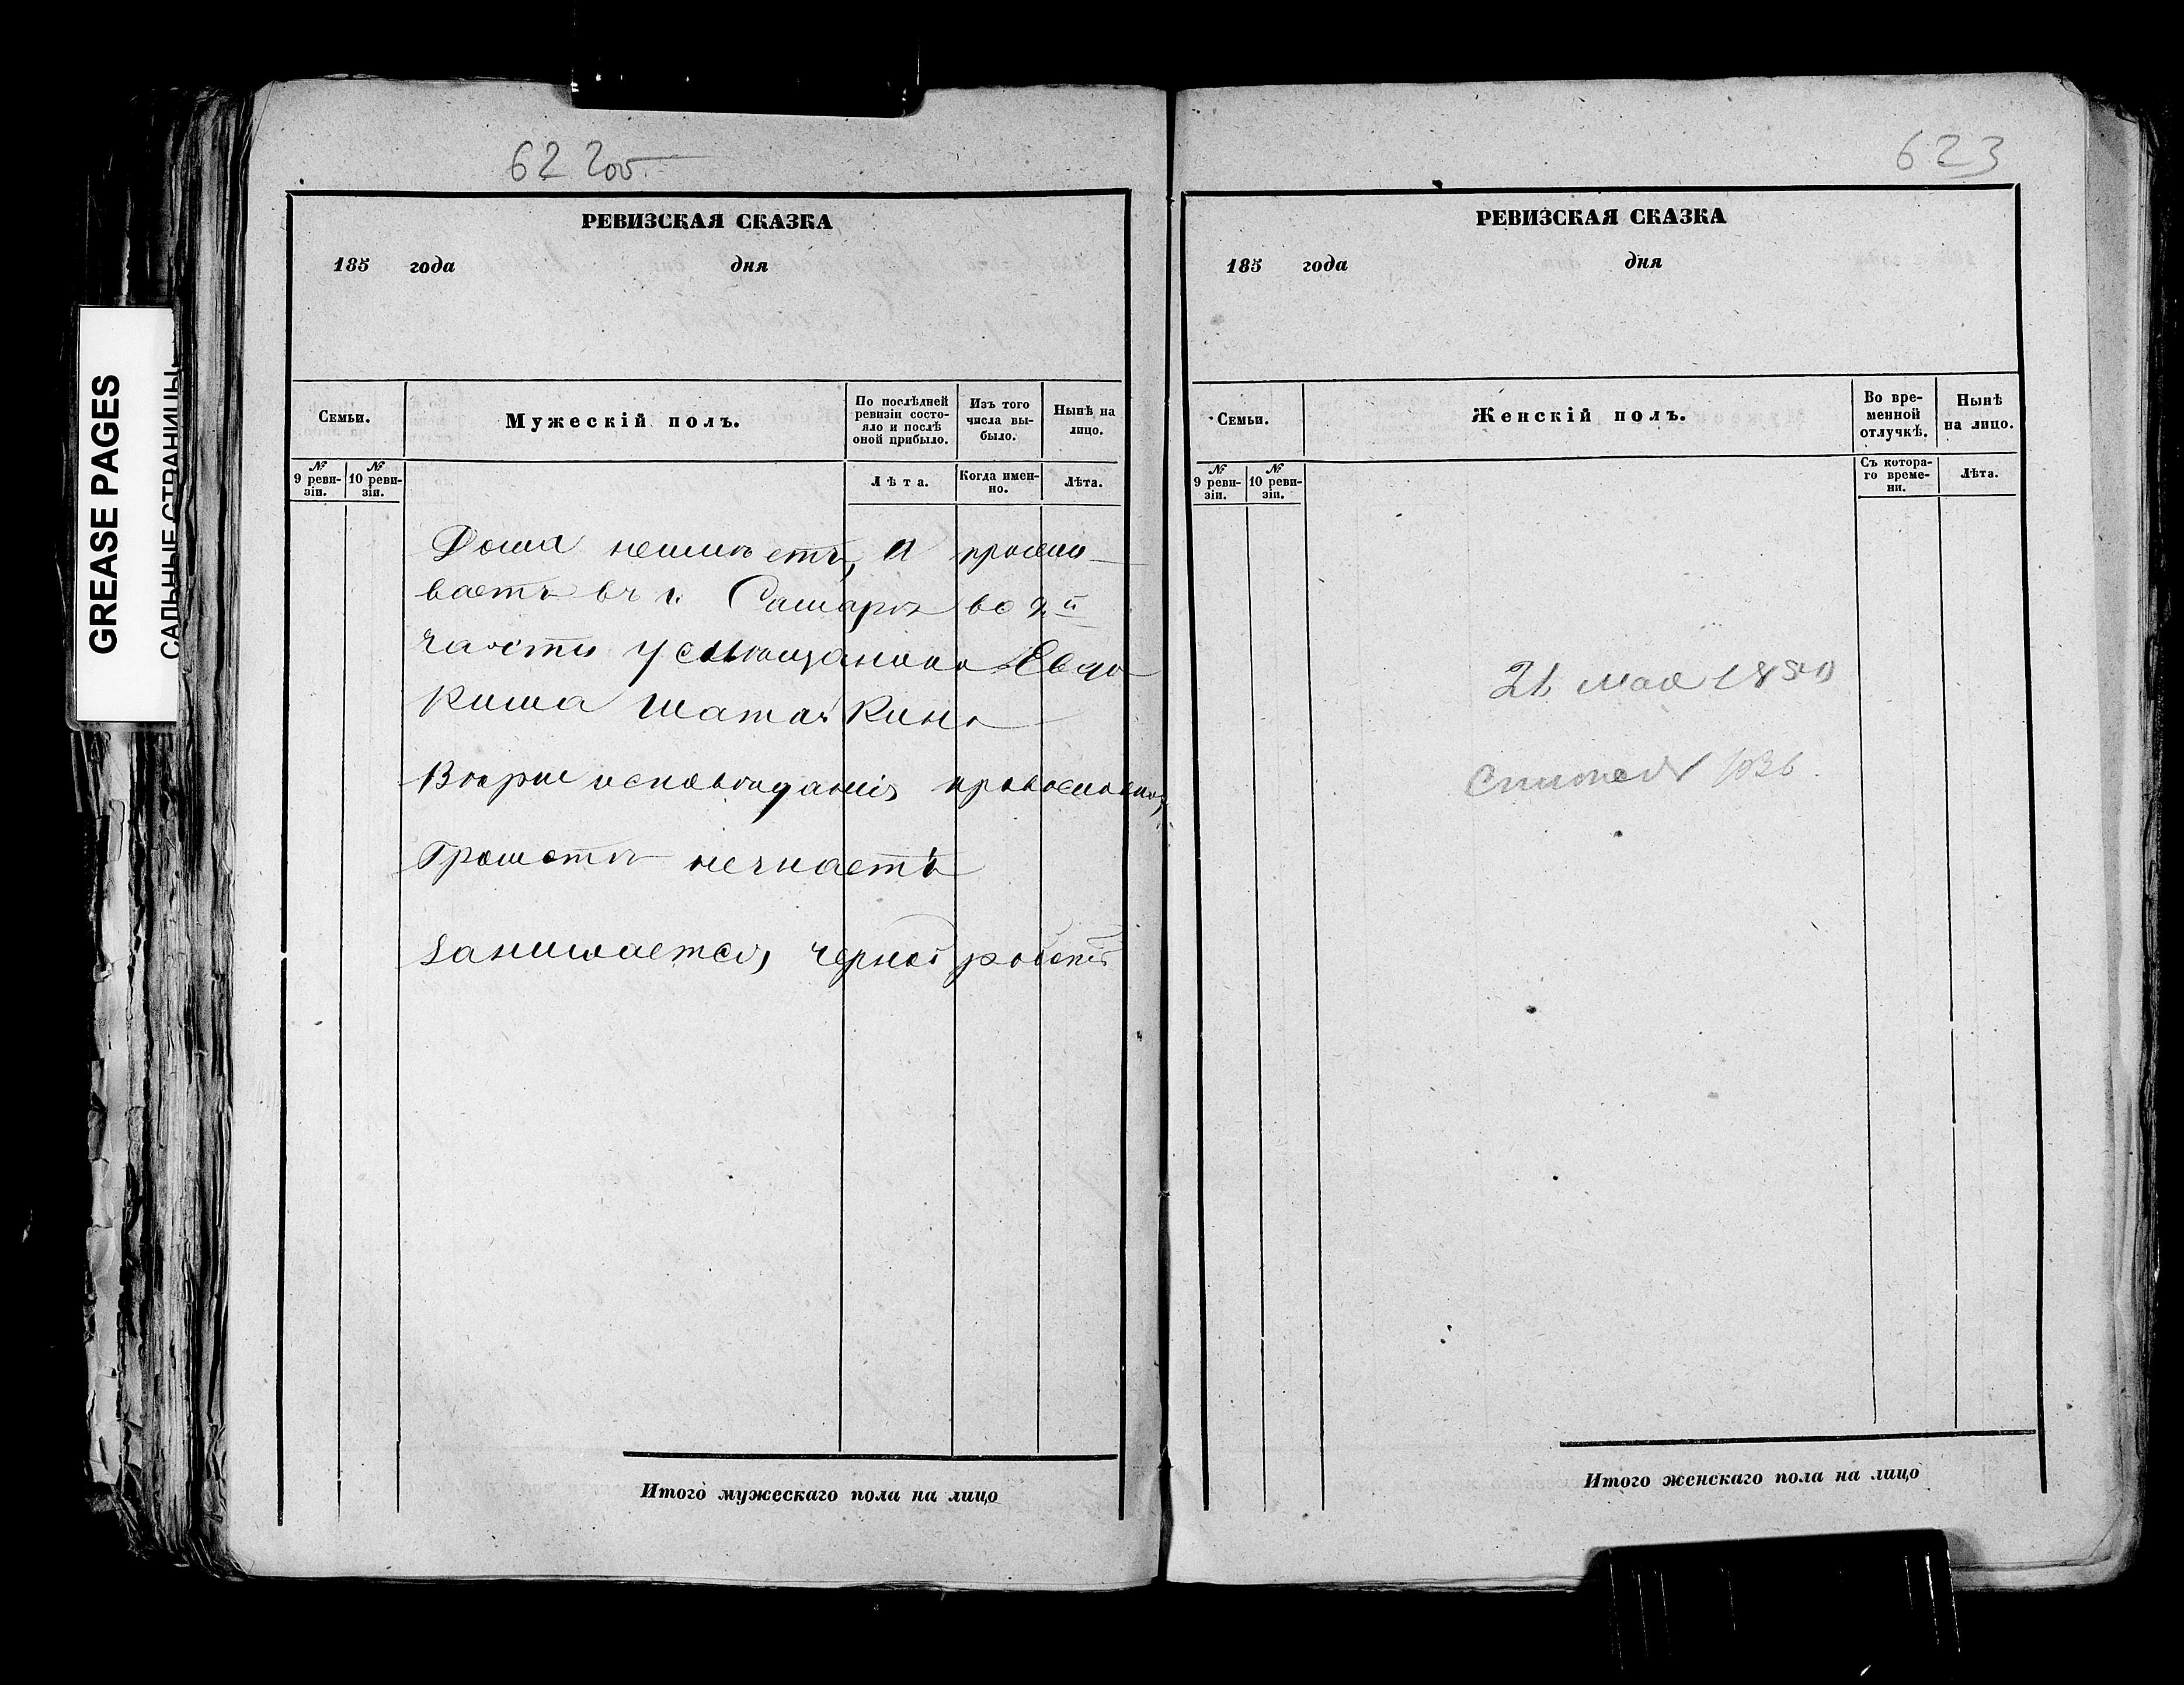 GREASE PAGES
САЛЬНЫЕ СТРАНИЦЫ
622об
РЕВИЗСКАЯ СКАЗКА
185 года дня
Семьи.
Мужескій полъ.
По послѣдней ревизіи состо-
яло и послѣ
оной прибыло.
Изъ того
числа вы-
было.
Нынѣ на
лицо.
№ 9 реви-
зіи.
№ 10 реви-
зіи.
Лѣта.
Когда имен-
но.
Лѣта.
Дома неимѣетъ, а прожи-
ваетъ въ г. Самарѣ во 2й
части у смѣщанина Евдо
кима Шатаѣкина
Вѣры исповѣданія православнаго
Грамотѣ незнаетъ
занимается, черной работой
Итого мужескаго пола на лицо
623
РЕВИЗСКАЯ СКАЗКА
185 года дня
Семьи.
Женскій полъ.
Во вре-
менной
отлучкѣ.
Нынѣ
на лицо.
№ 9 реви-
зіи.
№ 10 реви-
зіи.
Съ котора-
го време-
ни.
Лѣта.
21 мая 185
Итого женскаго пола на лицо